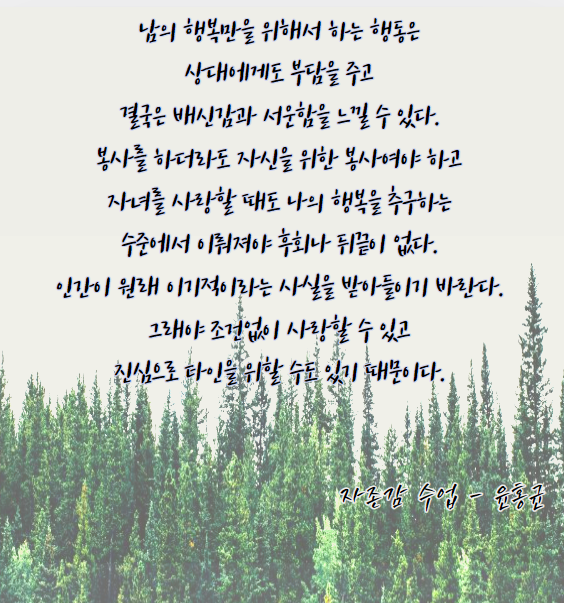 남의 행복만을 위해서 하는 행동은
상대에게도 부담을 주고
결국은 배신감과 서운함을 느낄 수 있다.
봉사를 하더라도 자신을 위한 봉사여야 하고
자녀를 사랑할 때도 나의 행복을 추구하는
수준에서 이뤄져야 후회나 뒤끝이 없다.
인간이 원래 이기적이라는 사실을 받아들이기 바란다.
그래야 조건없이 사랑할 수 있고
진심으로 타인을 위할 수도 있기 때문이다.
자존감 수업 - 윤홍균